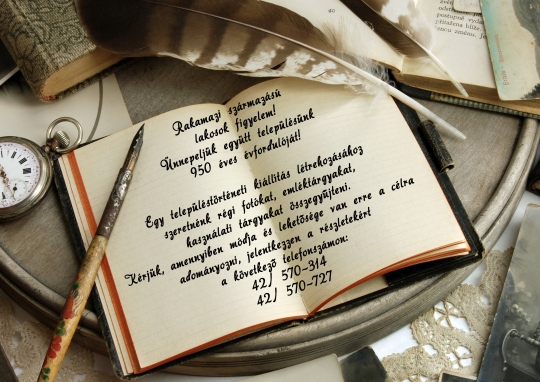 Rakamazi származású
lakosok figyelem!
Ünnepeljük együtt településünk
950 éves évfordulóját!
Egy településtörténeti kiállítás létrehozásához
szeretnénk régi fotókat, emléktárgyakat,
használati tárgyakat összegyűjteni.
Kérjük, amennyiben módja és lehetősége van erre a célra
adományozni, jelentkezzen a részletekért
a következő telefonszámon:
42/ 570-314
42/ 570-727